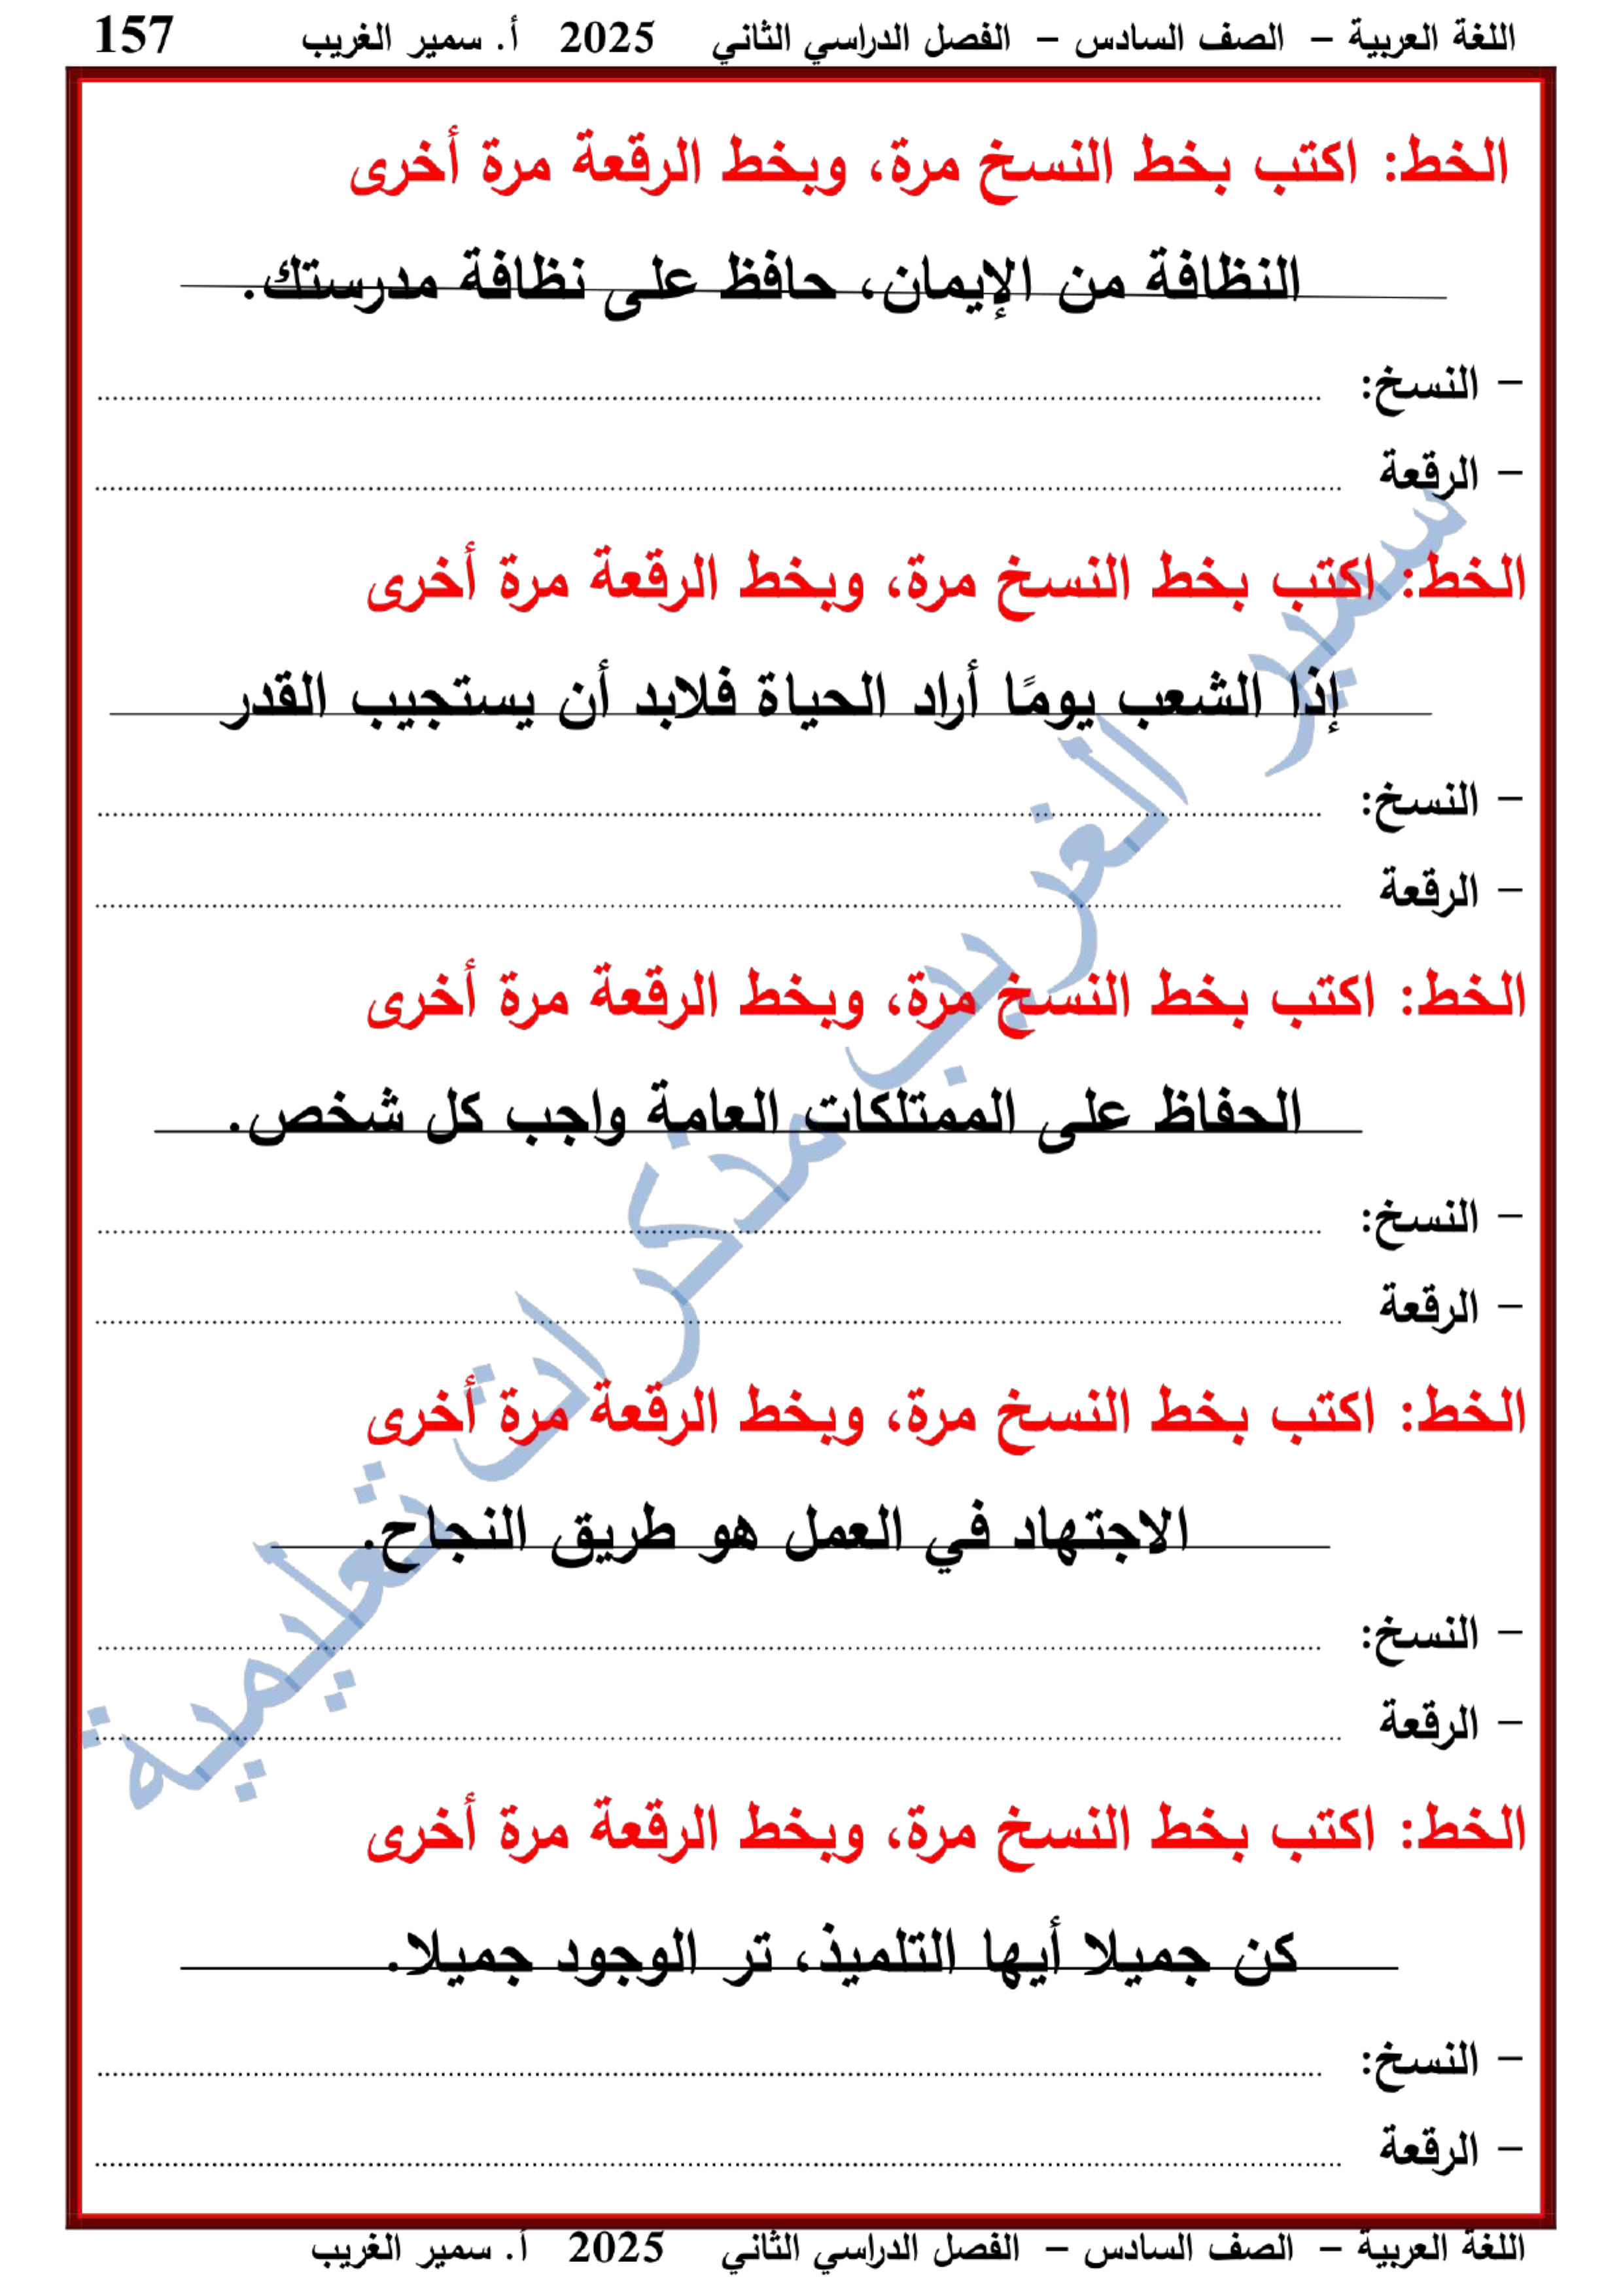 اللغة العربية – الصف السادس – الفصل الدراسي الثاني 2025 أ. سمير الغريب 157
الخط: اكتب بخط النسخ مرة، وبخط الرقعة مرة أخرى
النظافة من الإيمان، حافظ على نظافة مدرستك.
– النسخ: ........................................
– الرقعة ........................................
الخط: اكتب بخط النسخ مرة، وبخط الرقعة مرة أخرى
إذا الشعب يومًا أراد الحياة فلابد أن يستجيب القدر
– النسخ: ........................................
– الرقعة ........................................
الخط: اكتب بخط النسخ مرة، وبخط الرقعة مرة أخرى
الحفاظ على الممتلكات العامة واجب كل شخص.
– النسخ: ........................................
– الرقعة ........................................
الخط: اكتب بخط النسخ مرة، وبخط الرقعة مرة أخرى
الاجتهاد في العمل هو طريق النجاح.
– النسخ: ........................................
– الرقعة ........................................
الخط: اكتب بخط النسخ مرة، وبخط الرقعة مرة أخرى
كن جميلا أيها التلميذ، تر الوجود جميلا.
– النسخ: ........................................
– الرقعة ........................................
اللغة العربية – الصف السادس – الفصل الدراسي الثاني 2025 أ. سمير الغريب
سمير الغريب مذكرات تعليمية